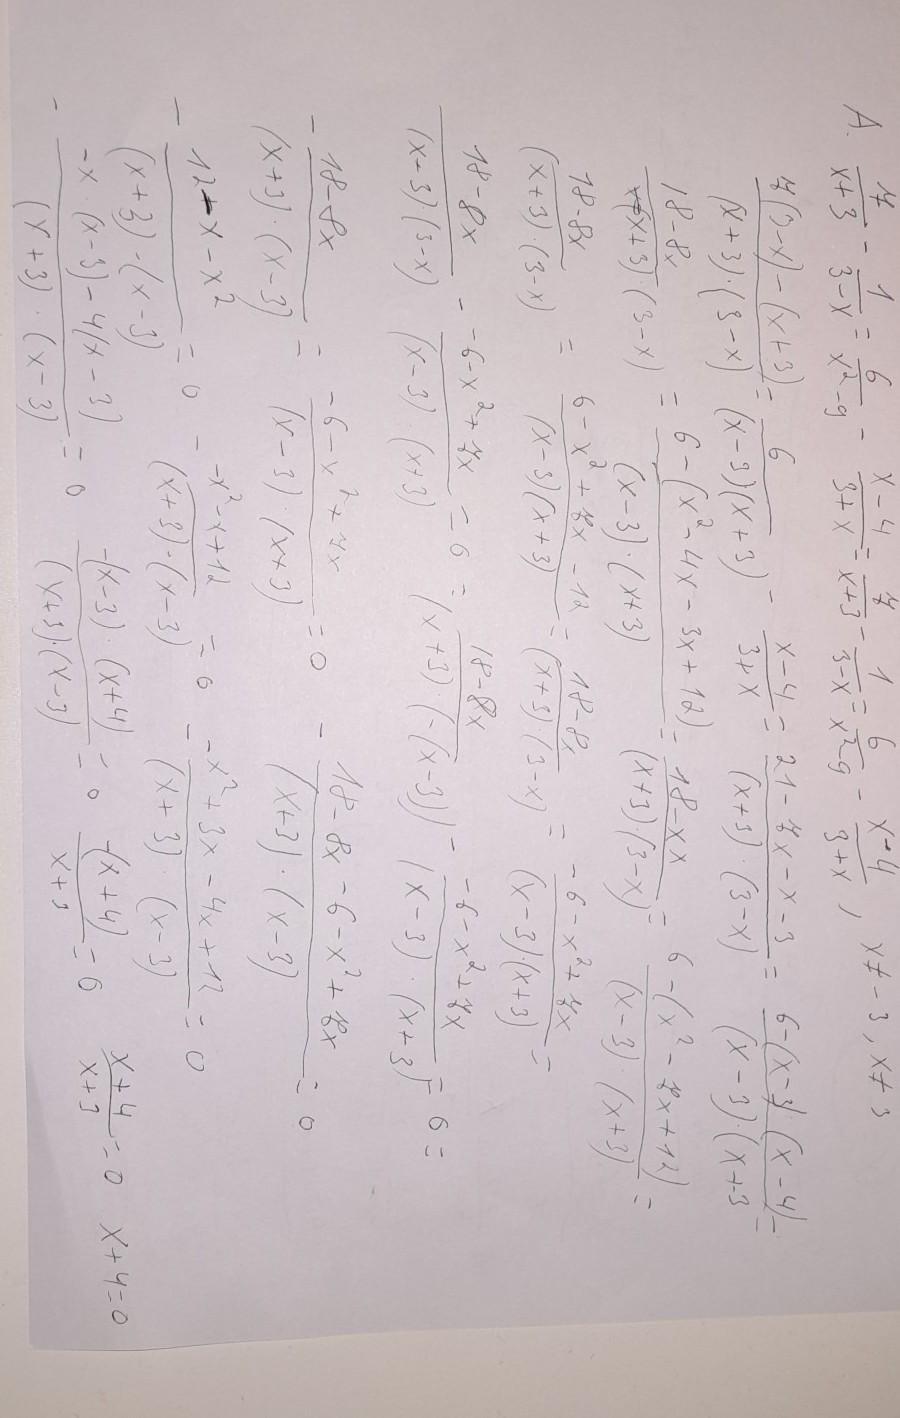 A. 7/(x+3) - 1/(3-x) = 6/(x²-9) - (x-4)/(3+x) = 7/(x+3) - 1/(3-x) = 6/(x²-9) - (x-4)/(3+x), x≠-3, x≠3
(7(3-x)-(x+3))/((x+3)·(3-x)) = 6/((x-3)(x+3)) - (x-4)/(3+x) = (21-7x-x-3)/((x+3)·(3-x)) = (6-(x-3)·(x-4))/((x-3)·(x+3) =
(18-8x)/((x+3)·(3-x)) = (6-(x²-4x-3x+12))/((x-3)·(x+3)) = /((x+3)·(3-x)) = (6-(x²-7x+12))/((x-3)·(x+3)) =
(18-8x)/((x+3)·(3-x)) = (6-x²+7x-12)/((x-3)(x+3)) = (18-8x)/((x+3)·(3-x)) = (-6-x²+7x)/((x-3)·(x+3)) =
(18-8x)/((x+3)(3-x)) - (-6-x²+7x)/((x-3)·(x+3)) = 0 = (18-8x)/((x+3)·(-(x-3)) - (-6-x²+7x)/((x-3)·(x+3)) = 0 =
- (18-8x)/((x+3)·(x-3)) = (-6-x²+7x)/((x-3)·(x+3)) = 0 - (18-8x-6-x²+7x)/((x+3)·(x-3)) = 0
- (12-x-x²)/((x+3)·(x-3)) = 0 - (-x²-x+12)/((x+3)·(x-3)) = 0 - (-x²+3x-4x+12)/((x+3)·(x-3)) = 0
- (-x·(x-3)-4(x-3))/((x+3)·(x-3)) = 0 (-(x-3)·(x+4))/((x+3)·(x-3)) = 0 (-(x+4))/(x+3) = 0 (x+4)/(x+3) = 0 x+4=0